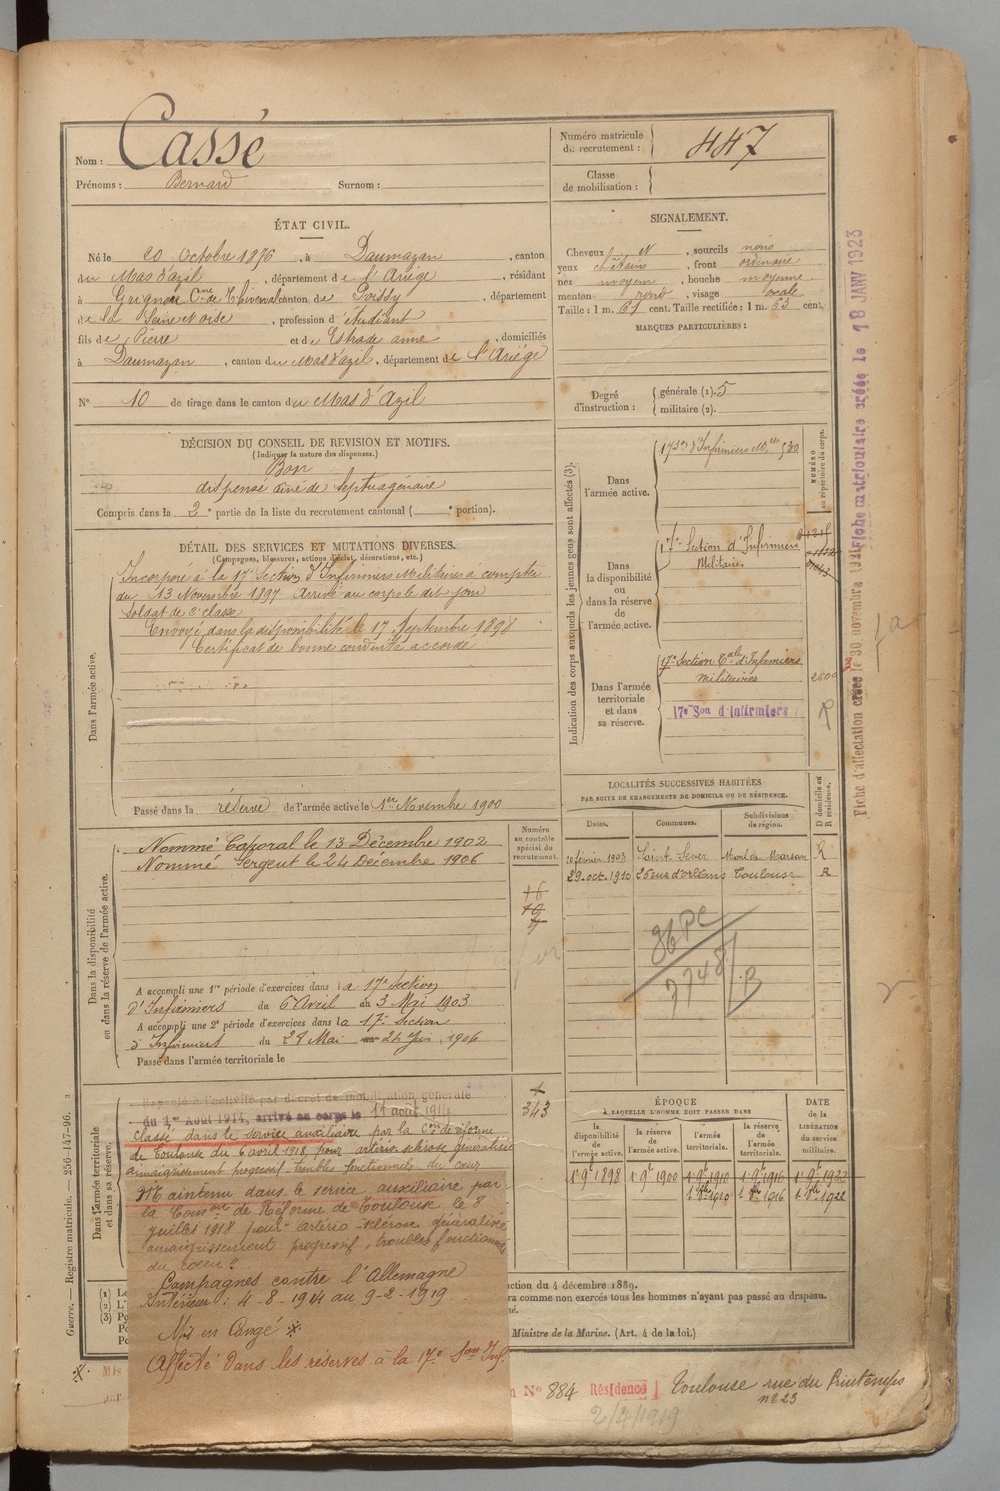 Nom : Cassé
Prénoms : Bernard Surnom :
Numéro matricule du recrutement : 447
Classe de mobilisation :
ÉTAT CIVIL.
Né le 20 Octobre 1876, à Daumazan, canton
du Mas d'azil, département de l'Ariège, résidant
à Grignon Cne de Thiverval canton de Poissy, département
de la Seine et oise, profession d'étudiant
fils de Pierre et de Estrade anne, domiciliés
à Daumazan, canton du Mas d'azil, département de l'Ariège
N° 10 de tirage dans le canton du Mas d'Azil
SIGNALEMENT.
Cheveux N, sourcils noirs
yeux châtains, front ordinaire
nez moyen, bouche moyenne
menton rond, visage ovale
Taille : 1 m. 61 cent. Taille rectifiée : 1 m. 63 cent.
MARQUES PARTICULIÈRES :
Degré d'instruction : générale (1). 5
militaire (2).
DÉCISION DU CONSEIL DE REVISION ET MOTIFS.
(Indiquer la nature des dispenses.)
Bon
dispensé ainé de septuagénaire
Compris dans la 2e partie de la liste du recrutement cantonal ( e portion).
DÉTAIL DES SERVICES ET MUTATIONS DIVERSES.
(Campagnes, blessures, actions d'éclat, décorations, etc.)
Dans l'armée active.
Incorporé à la 17e Section d'Infirmiers Militaires à compter
du 13 Novembre 1897 Arrivé au corps le dit jour
Soldat de 2e classe
Envoyé dans la disponibilité le 17 Septembre 1898
Certificat de bonne conduite accordé
Passé dans la réserve de l'armée active le 1er Novembre 1900
Indication des corps auxquels les jeunes gens sont affectés (3).
NUMÉRO au répertoire du corps.
Dans l'armée active.
17e Son d'Infirmiers Mres 530
Dans la disponibilité ou dans la réserve de l'armée active.
17e Section d'Infirmiers
Militaires
Dans l'armée territoriale et dans sa réserve.
17e Section Tale d'Infirmiers
militaires
2600
17e Son d'Infirmiers
R
Dans la disponibilité ou dans la réserve de l'armée active.
Numéro au contrôle spécial du recrutement.
Nommé Caporal le 13 Décembre 1902
Nommé Sergent le 24 Décembre 1906
16
A accompli une 1re période d'exercices dans la 17e Section
d'Infirmiers du 6 Avril au 3 Mai 1903
A accompli une 2e période d'exercices dans la 17e Section
d'Infirmiers du 28 Mai au 24 Juin 1906
Passé dans l'armée territoriale le
LOCALITÉS SUCCESSIVES HABITÉES
PAR SUITE DE CHANGEMENTS DE DOMICILE OU DE RÉSIDENCE.
Dates. Communes. Subdivisions de région. D domicile ou R résidence.
10 février 1903 Saint Sever Mont de Marsan R
29. oct. 1910 25 rue d'orléans Toulouse R
Dans l'armée territoriale et dans sa réserve.
Rappelé à l'activité par décret de mobilisation générale
du 1er Août 1914, arrivé au corps le 11 août 1914
343
Classé dans le service auxiliaire par la Con de réforme
de Toulouse du 6 avril 1918 pour artério sclérose généralisée
amaigrissement progressif troubles fonctionnels du cœur
Maintenu dans le service auxiliaire par
la Comon de Réforme de Toulouse le 8
juillet 1918 pour artério-sclérose généralisée
amaigrissement progressif, troubles fonctionnels
du cœur.
Campagnes contre l'Allemagne
Intérieur : 4-8-1914 au 9-2-1919
Mis en Congé
Affecté dans les réserves à la 17e Son Inf.
ÉPOQUE
À LAQUELLE L'HOMME DOIT PASSER DANS
la disponibilité de l'armée active. la réserve de l'armée active. l'armée territoriale. la réserve de l'armée territoriale.
DATE de la LIBÉRATION du service militaire.
1 9e 1898 1 9e 1900 1 9e 1910 1 9e 1916 1 9e 1922
1 8bre 1910 1 8bre 1916 1 8bre 1922
(1)
(2)
(3)
uction du 4 décembre 1889.
ra comme non exercés tous les hommes n'ayant pas passé au drapeau.
Ministre de la Marine. (Art. 4 de la loi.)
Mis
N° 884 Résidence Toulouse rue du Printemps
n° 23
2/4/1919
Guerre. — Registre matricule. — 256-147-96.
Fiche d'affectation créée le 30 novembre 1921
Fiche matriculaire créée le 18 JANV 1923